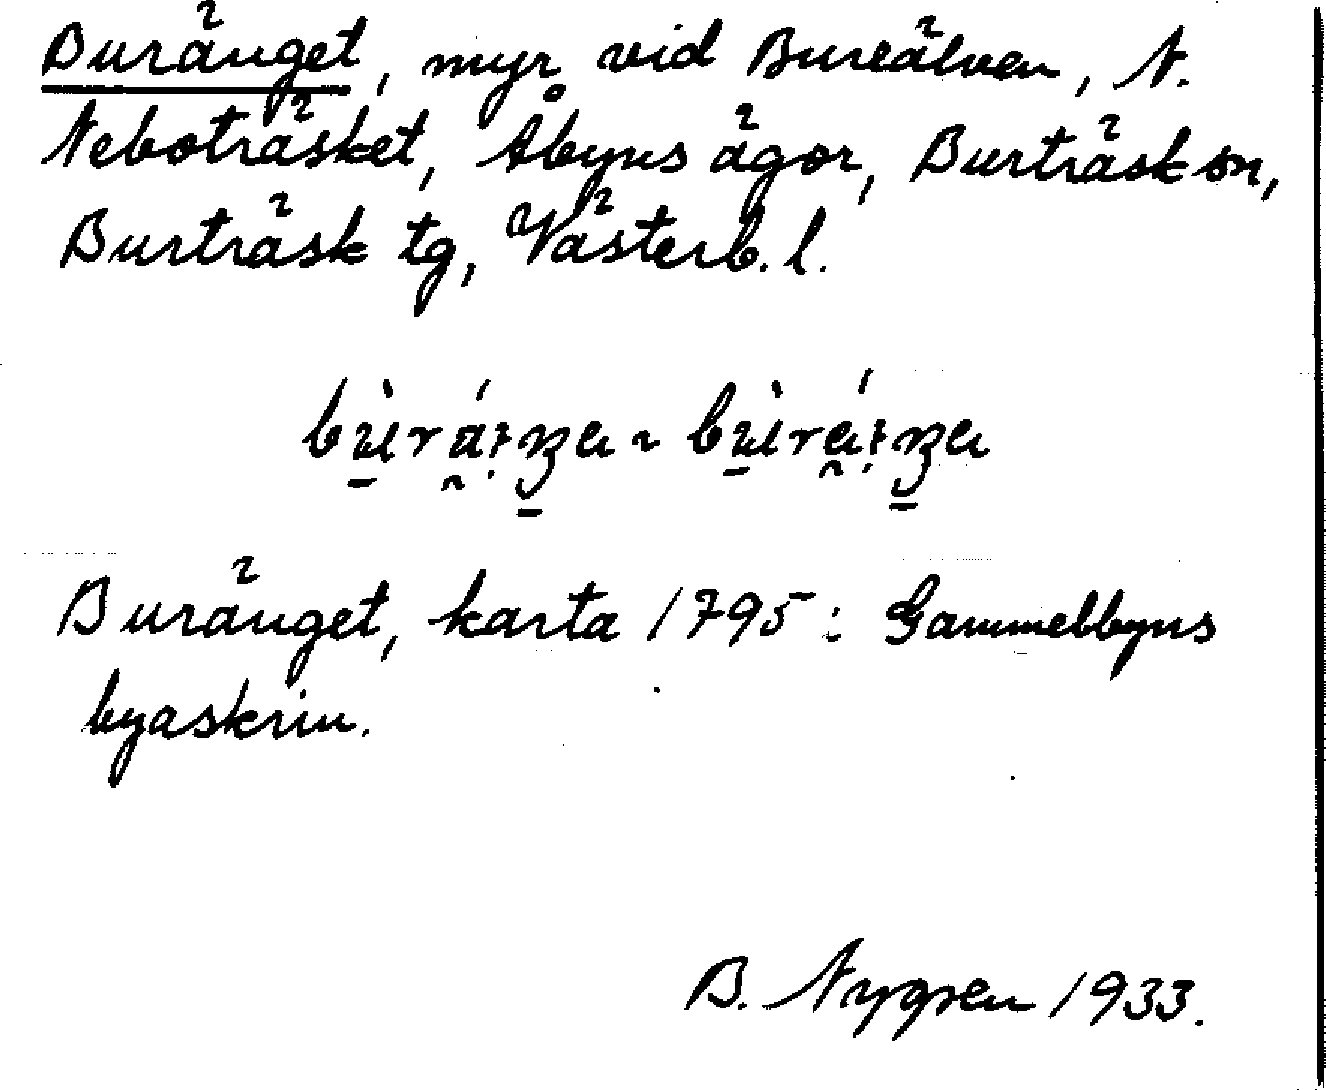 Buränget, myr vid Bureälven, N.
Neboträsket, Åbyns ägor, Burträsk sn,
Burträsk tg, Västerb. l.
Buränget, karta 1795: Gammelbyns
byaskrin.
B. Nygren 1933.